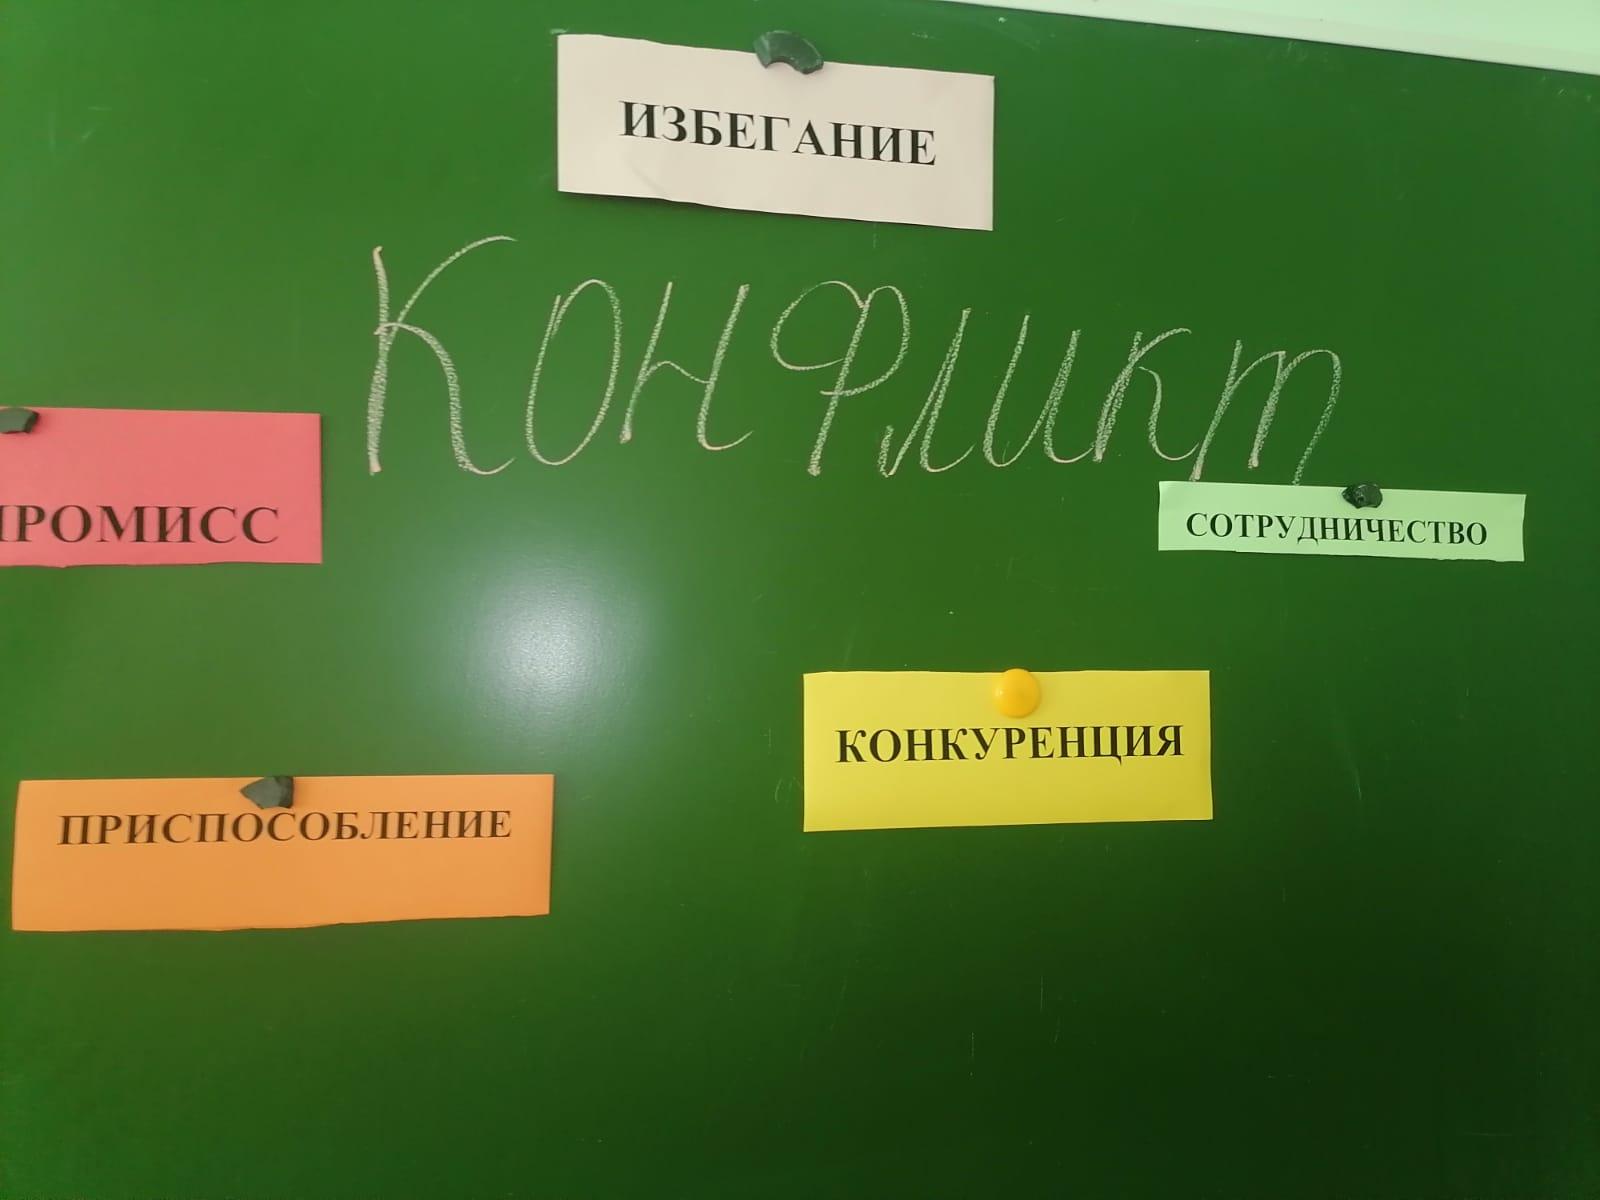 ИЗБЕГАНИЕ
Конфликт
ПРОМИСС
СОТРУДНИЧЕСТВО
КОНКУРЕНЦИЯ
ПРИСПОСОБЛЕНИЕ